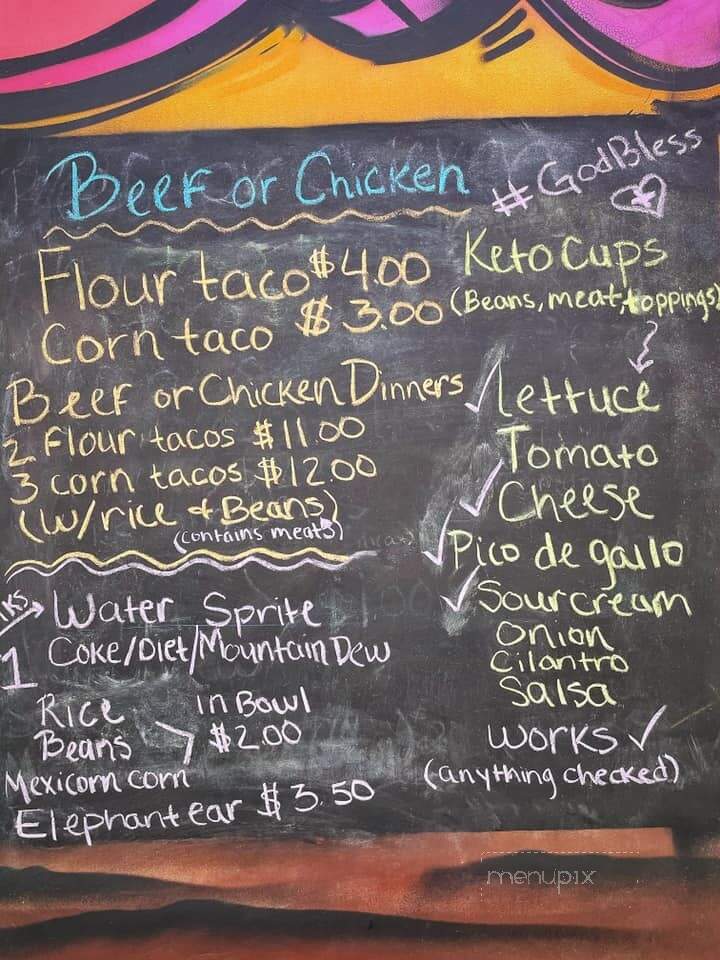 Beef or Chicken
Flour taco $4.00
Corn taco $3.00
Beef or Chicken Dinners
2 Flour tacos $11.00
3 corn tacos $12.00
(w/rice & Beans)
(contains meats)
Water Sprite
1 Coke/Diet/Mountain Dew
Rice in Bowl
Beans > $2.00
Mexicorn corn
Elephant ear $3.50
#GodBless
Keto Cups
(Beans, meat, toppings)
✓ Lettuce
Tomato
✓ Cheese
✓ Pico de gallo
✓ Sour cream
Onion
Cilantro
Salsa
Works ✓
(anything checked)
menupix